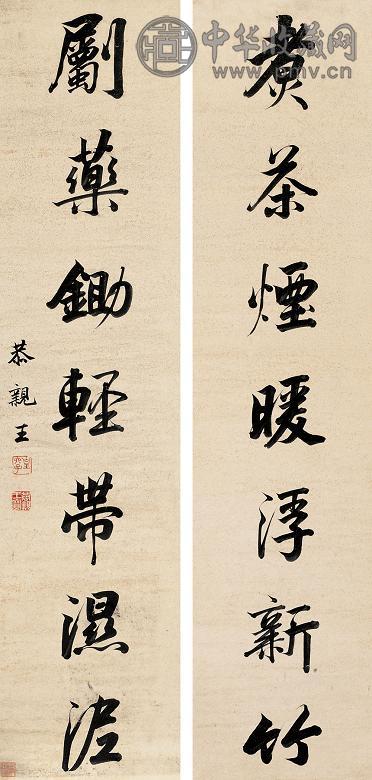 中华收藏网
www.pmv.cn
煮茶煙暖浮新竹
劚藥鋤輕帶濕泥
恭親王